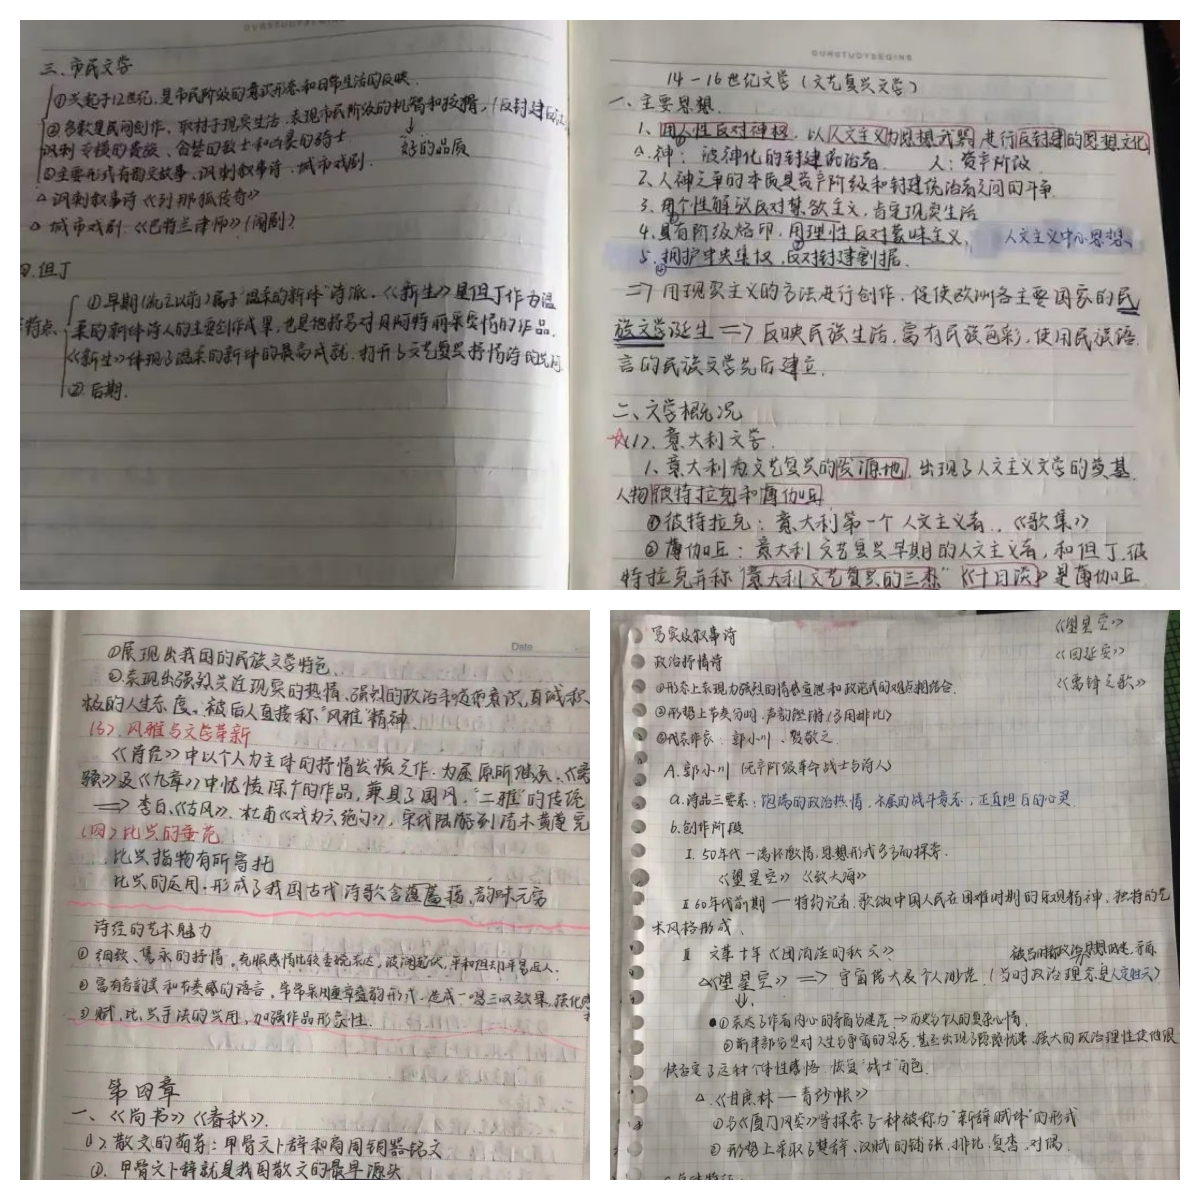 OURSTUDYBEGINS
三、市民文学
①兴起于12世纪,是市民阶级的意识形态和日常生活的反映.
②多数是民间创作,取材于现实生活,表现市民阶级的机智和狡猾,(反封建
讽刺专横的贵族、贪婪的教士和凶暴的骑士
好的品质
③主要形式有韵文故事、讽刺叙事诗、城市戏剧.
△讽刺叙事诗《列那狐传奇》
△城市戏剧.《巴特兰律师》(闹剧)
四.但丁
特点
①早期(流亡以前)属于"温柔的新体"诗派.《新生》是但丁作为温
柔的新体诗人的主要创作成果,也是他抒写对贝阿特丽采爱情的作品.
《新生》体现了温柔的新体的最高成就.打开了文艺复兴抒情诗的先河
②后期.
OURSTUDYBEGINS
14-16世纪文学(文艺复兴文学)
一、主要思想.
1、用人性反对神权,以人文主义为思想武器进行反封建的思想文化
a.神:被神化的封建统治者. 人:资产阶级
2、人神之争的本质是资产阶级和封建统治者之间的斗争
3、用个性解放反对禁欲主义,肯定现实生活
4、具有阶级烙印,用理性反对蒙昧主义, 人文主义中心思想.
5、拥护中央集权,反对封建割据.
⇒用现实主义的方法进行创作,促使欧洲各主要国家的民
族文学诞生⇒反映民族生活,富有民族色彩,使用民族语
言的民族文学先后建立.
二、文学概况
☆(1).意大利文学.
1、意大利为文艺复兴的发源地,出现了人文主义文学的奠基
人物彼特拉克和薄伽丘
①彼特拉克:意大利第一个人文主义者.《歌集》
②薄伽丘:意大利文艺复兴早期的人文主义者,和但丁、彼
特拉克并称"意大利文艺复兴的三杰"《十日谈》是薄伽丘
Date
①展现出我国的民族文学特色.
②表现出强烈关注现实的热情、强烈的政治和道德意识,真诚积
极的人生态度,被后人直接称"风雅"精神
(3).风雅与文学革新
《诗经》中以个人为主体的抒情发愤之作.为屈原所继承.《离
骚》及《九章》中忧愤深广的作品,兼具了国风、"二雅"的传统
⇒李白《古风》.杜甫《戏为六绝句》,宋代陆游到清末黄遵宪
(四)比兴的垂范
比兴指物有所寄托
比兴的运用,形成了我国古代诗歌含蕴蕴藉、韵味无穷
诗经的艺术魅力
①细致、隽永的抒情,克服感情比较委婉表达,波澜起伏,平和但却平易近人.
②富有音韵美和节奏感的语言,毕常采用重章叠韵形式,造成一唱三叹效果,强化感
③赋、比、兴手法的兴用,加强作品形象性.
第四章
一、《尚书》《春秋》.
(1).散文的萌芽:甲骨文卜辞和商周铜器铭文
①.甲骨文卜辞就是我国散文的最早源头
写实及叙事诗
《望星空》
政治抒情诗
《回延安》
①形态上表现为强烈的情感宣泄和政论式的观点相结合.
《雷锋之歌》
②形势上节奏分明.声韵铿锵(多用排比)
③代表作家:郭小川、贺敬之
A.郭小川(无产阶级革命战士与诗人)
a.诗品三要素:饱满的政治热情、水晶的战斗意志,正直坦白的心灵
b.创作阶段
Ⅰ.50年代—满怀激情,思想形式多方面探索.
《望星空》《致大海》
Ⅱ60年代前期—特约记者.歌颂中国人民在困难时期的乐观精神,独特的艺
术风格形成、
Ⅲ 文革十年《团泊洼的秋天》
△《望星空》⇒宇宙浩大及个人渺茫(当时政治理念是人定胜天)
①表达了作者内心的矛盾与迷茫→历史与个人的复杂心情.
②前半部分是对人生与宇宙的思考,甚至出现了隐隐忧患,强大的政治理性使他很
快否定了这种个体性感悟,恢复"战士"角色.
△.《甘蔗林—青纱帐》
①与《厦门风姿》等探索了一种被称为"新辞赋体"的形式
②形势上采取了楚辞、汉赋的铺张、排比、复沓、对偶.